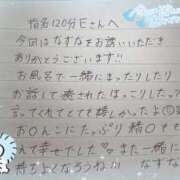 指名120分Eさんへ
今回はなずなをお誘いいただき
ありがとうございます!!
お風呂で一緒にまったりしたり
お話して癒されたほっこりした♡
言ってくれてとても嬉しかったよ
お〇んこにたっぷり精〇せ
えて幸せでした♡また一緒に
持ちよくなろうね!! なずな